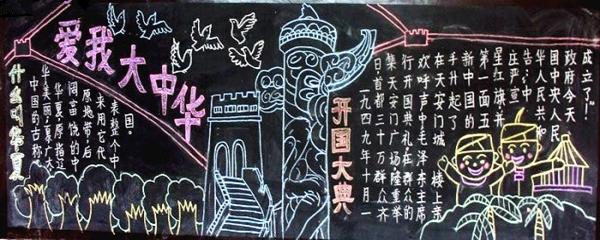 爱我大中华
什么叫华夏
中国的古称
华美丽,夏大
华夏:原指辽
阔富饶的中
原地带,后
来用它代
表整个中
国。
开国大典
一九四九年十月一
日,首都三十万群众齐
集天安门广场隆重举
行开国典礼,在群众的
欢呼声中毛泽东主席
在天安门城楼上亲
手升起了
新中国的
第一面五
星红旗并
庄严宣
告:中
华人民共和
国中央人民
政府今天
成立了!